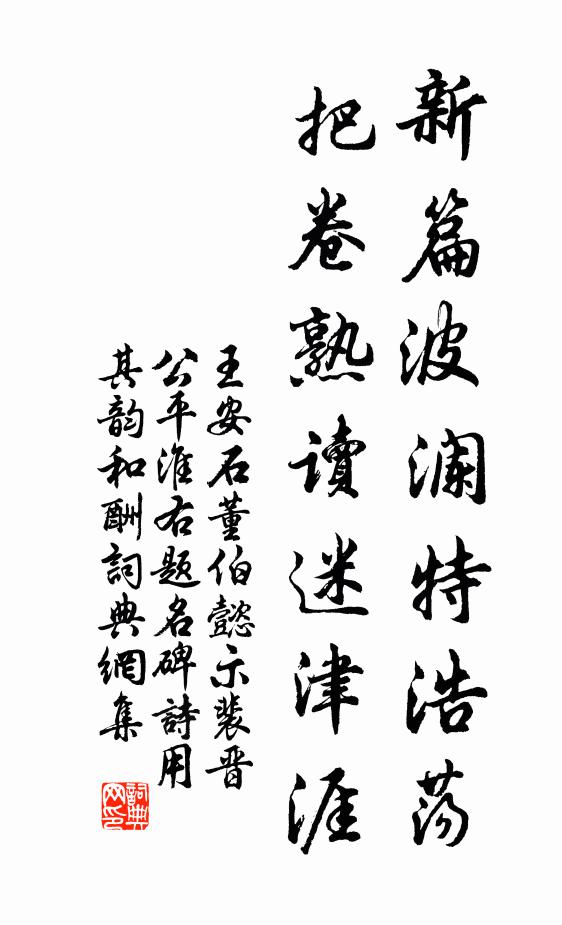 新篇波澜特浩荡
把卷熟读迷津涯
王安石董伯懿示裴晋
公平淮右题名碑詩用
其韵和酬詞典網集
詞典
网印